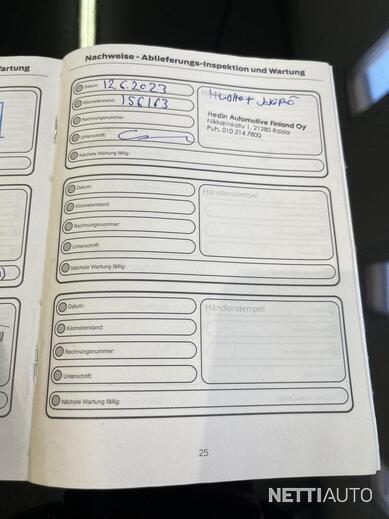 Wartung
Nachweise - Ablieferungs-Inspektion und Wartung
Datum: 12.6.2023
Kilometerstand: 156183
Rechnungsnummer:
Unterschrift:
Nächste Wartung fällig:
Huolto +
Hedin Automotive Finland Oy
Nikkarinkatu 1, 21280 Raisio
Puh. 010 214 7800
Datum:
Kilometerstand:
Rechnungsnummer:
Unterschrift:
Nächste Wartung fällig:
Händlerstempel
Datum:
Kilometerstand:
Rechnungsnummer:
Unterschrift:
Nächste Wartung fällig:
Händlerstempel
25
NETTIAUTO